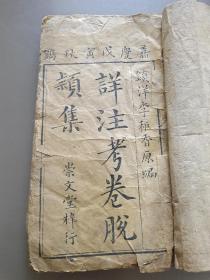 嘉慶戊寅秋鐫
頴洋李種香原編
詳注考卷脫
穎集
崇文堂梓行